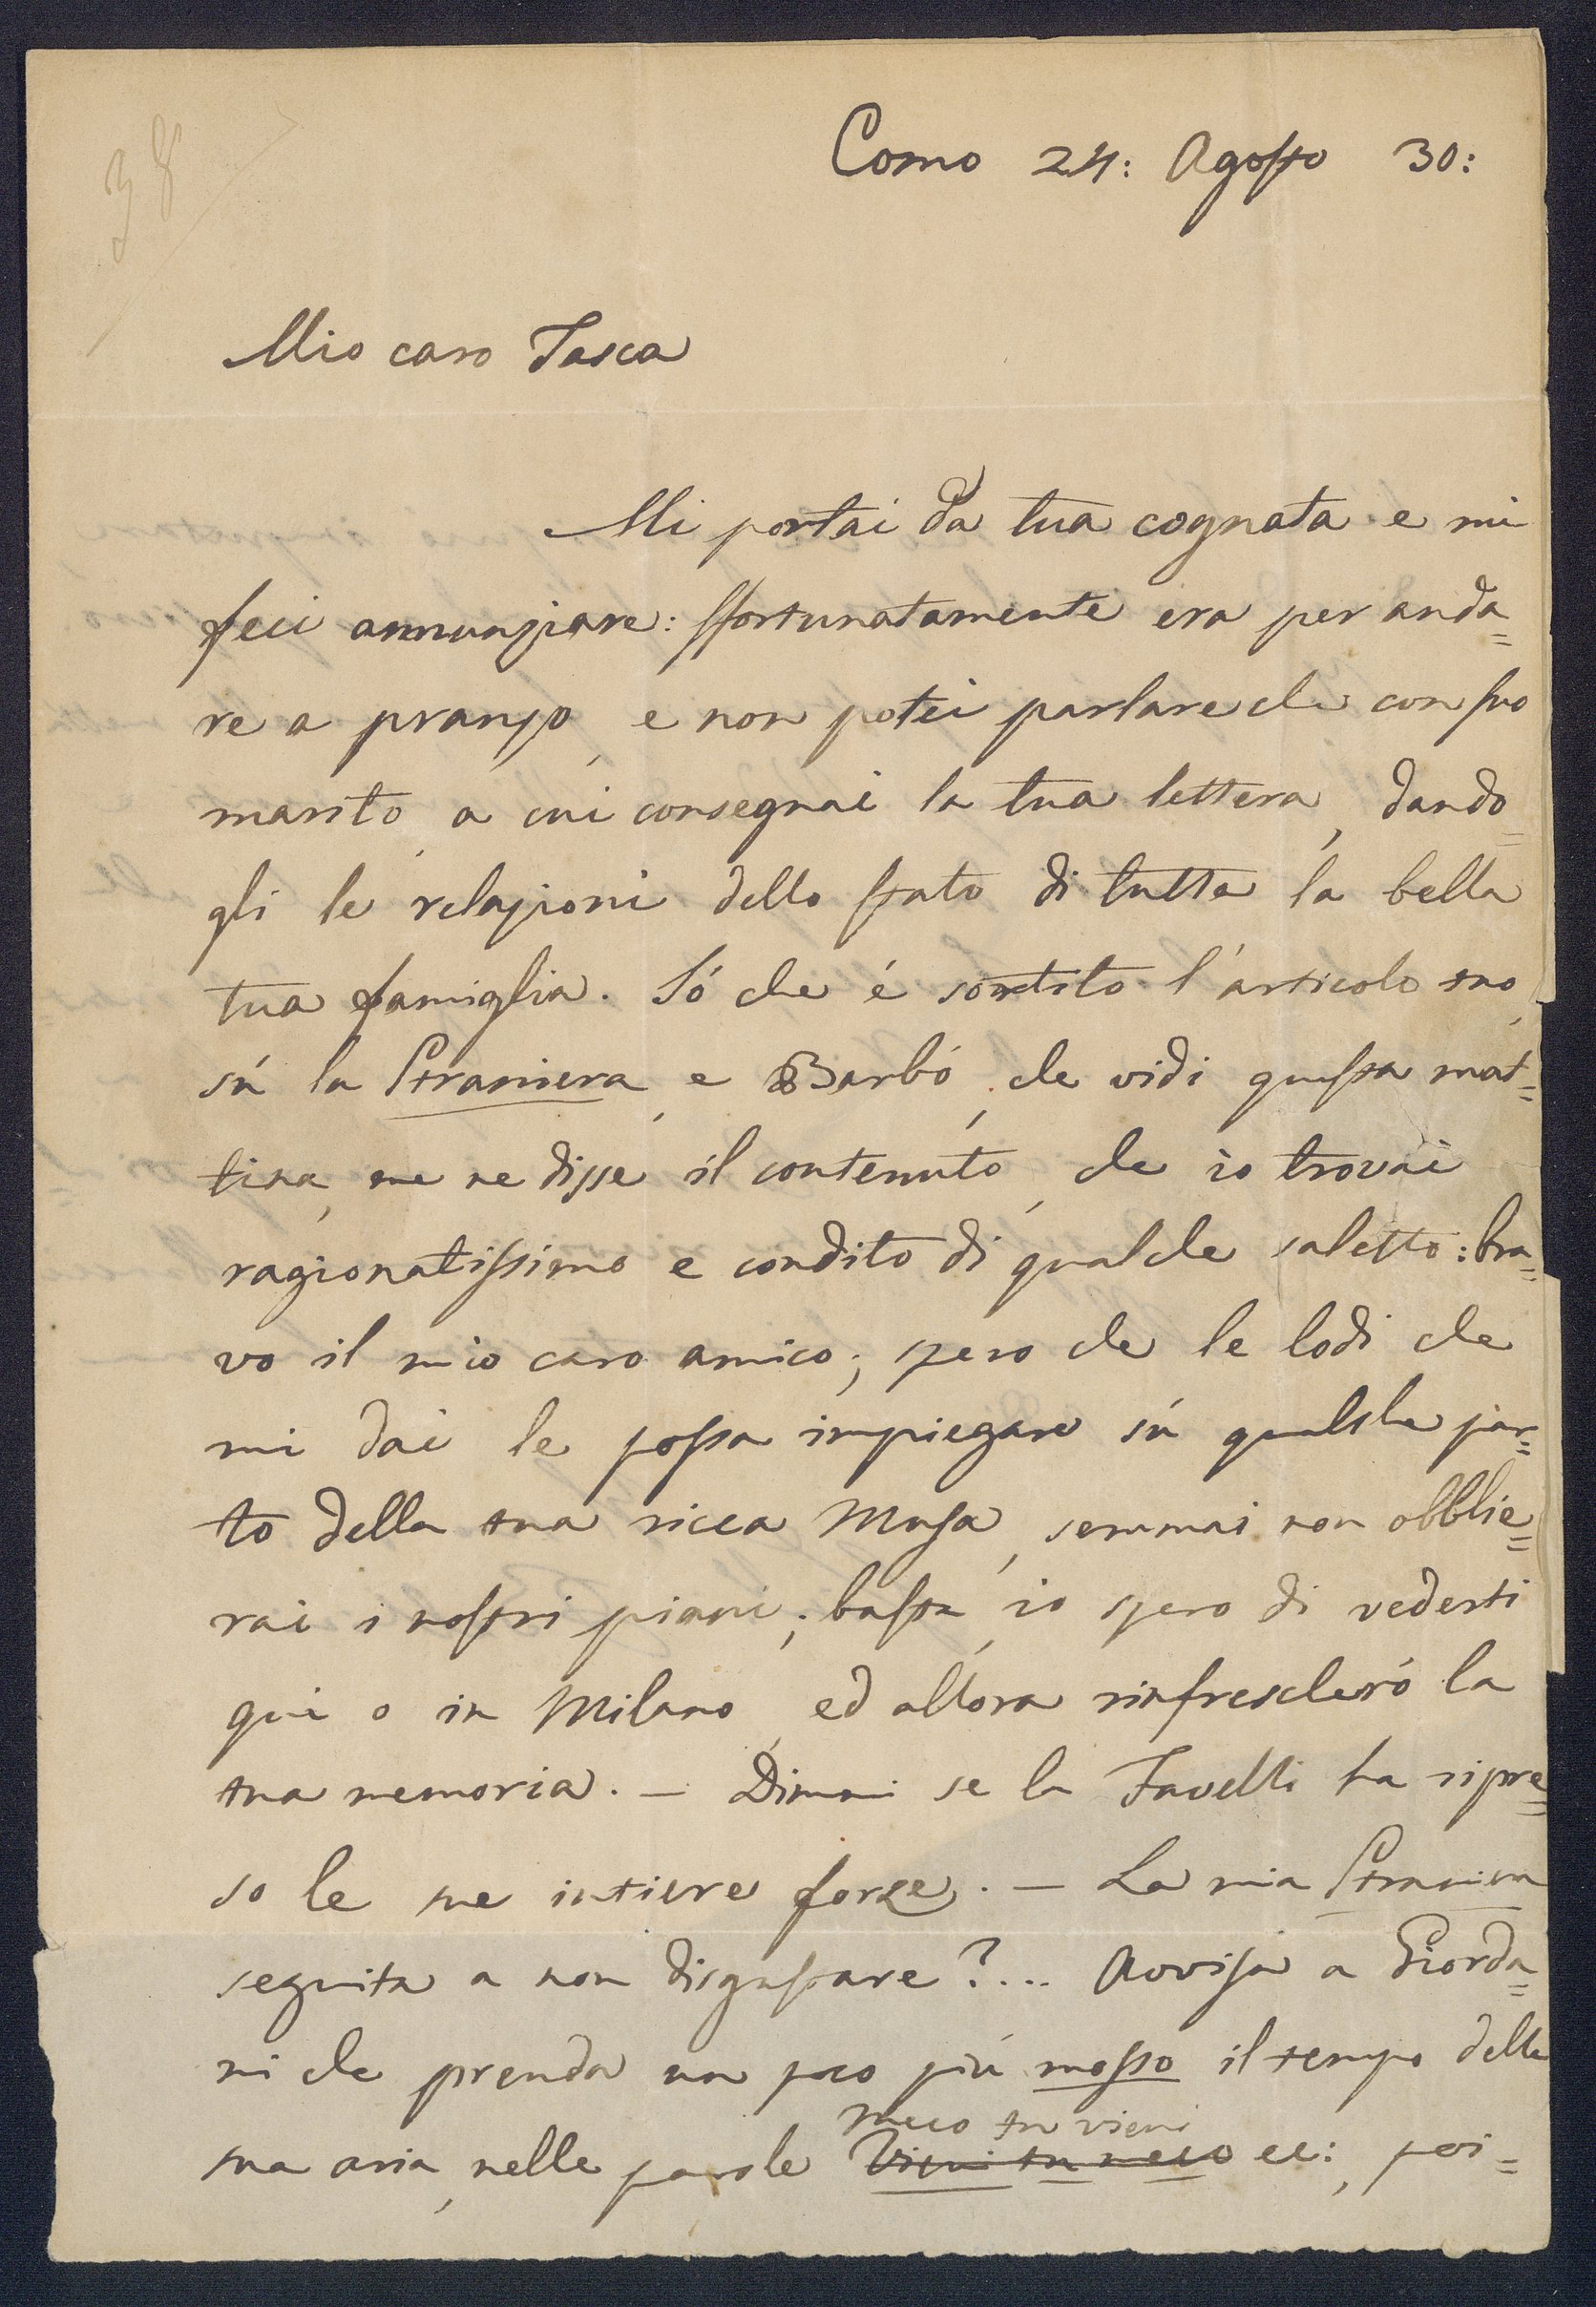 38
Como 24: Agosto 30:
Mio caro Tasca
Mi portai da tua cognata e mi
feci annunziare: sfortunatamente era per anda=
re a pranzo, e non potei parlare che con suo
marito, a cui consegnai la tua lettera, dando=
gli le relazioni dello stato di tutta la bella
tua famiglia. Só che é sortito l'articolo tuo,
sú la Straniera, e Barbó, che vidi questa mat=
tina, me ne disse il contenuto, che io trovai
ragionatissimo e condito di qualche saletto: bra=
vo il mio caro amico; spero che le lodi che
mi dai le possa impiegare sú qualche par=
to della tua ricca Musa, semmai non obblie=
rai i nostri piani; basta, io spero di vederti
qui o in Milano, ed allora rinfrescheró la
tua memoria. — Dimmi se la Favelli ha ripre=
so le sue intiere forze. — La mia Straniera
seguita a non disgustare?... Avvisa a Giorda=
ni che prenda un poco piú mosso il tempo della
Meco tu vieni
sua aria, nelle parole Vieni tu meco ec:, poi=